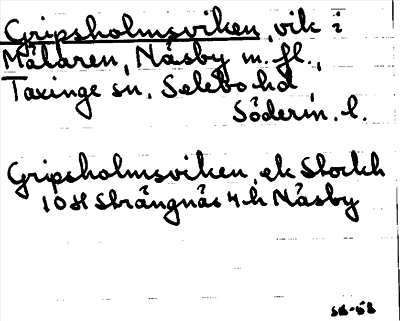 Gripsholmsviken, vik i
Mälaren, Näsby m. fl.,
Taxinge sn, Selebo hd,
Söderm. l.
Gripsholmsviken, ek Stockh
10SV Strängnäs 4h Näsby